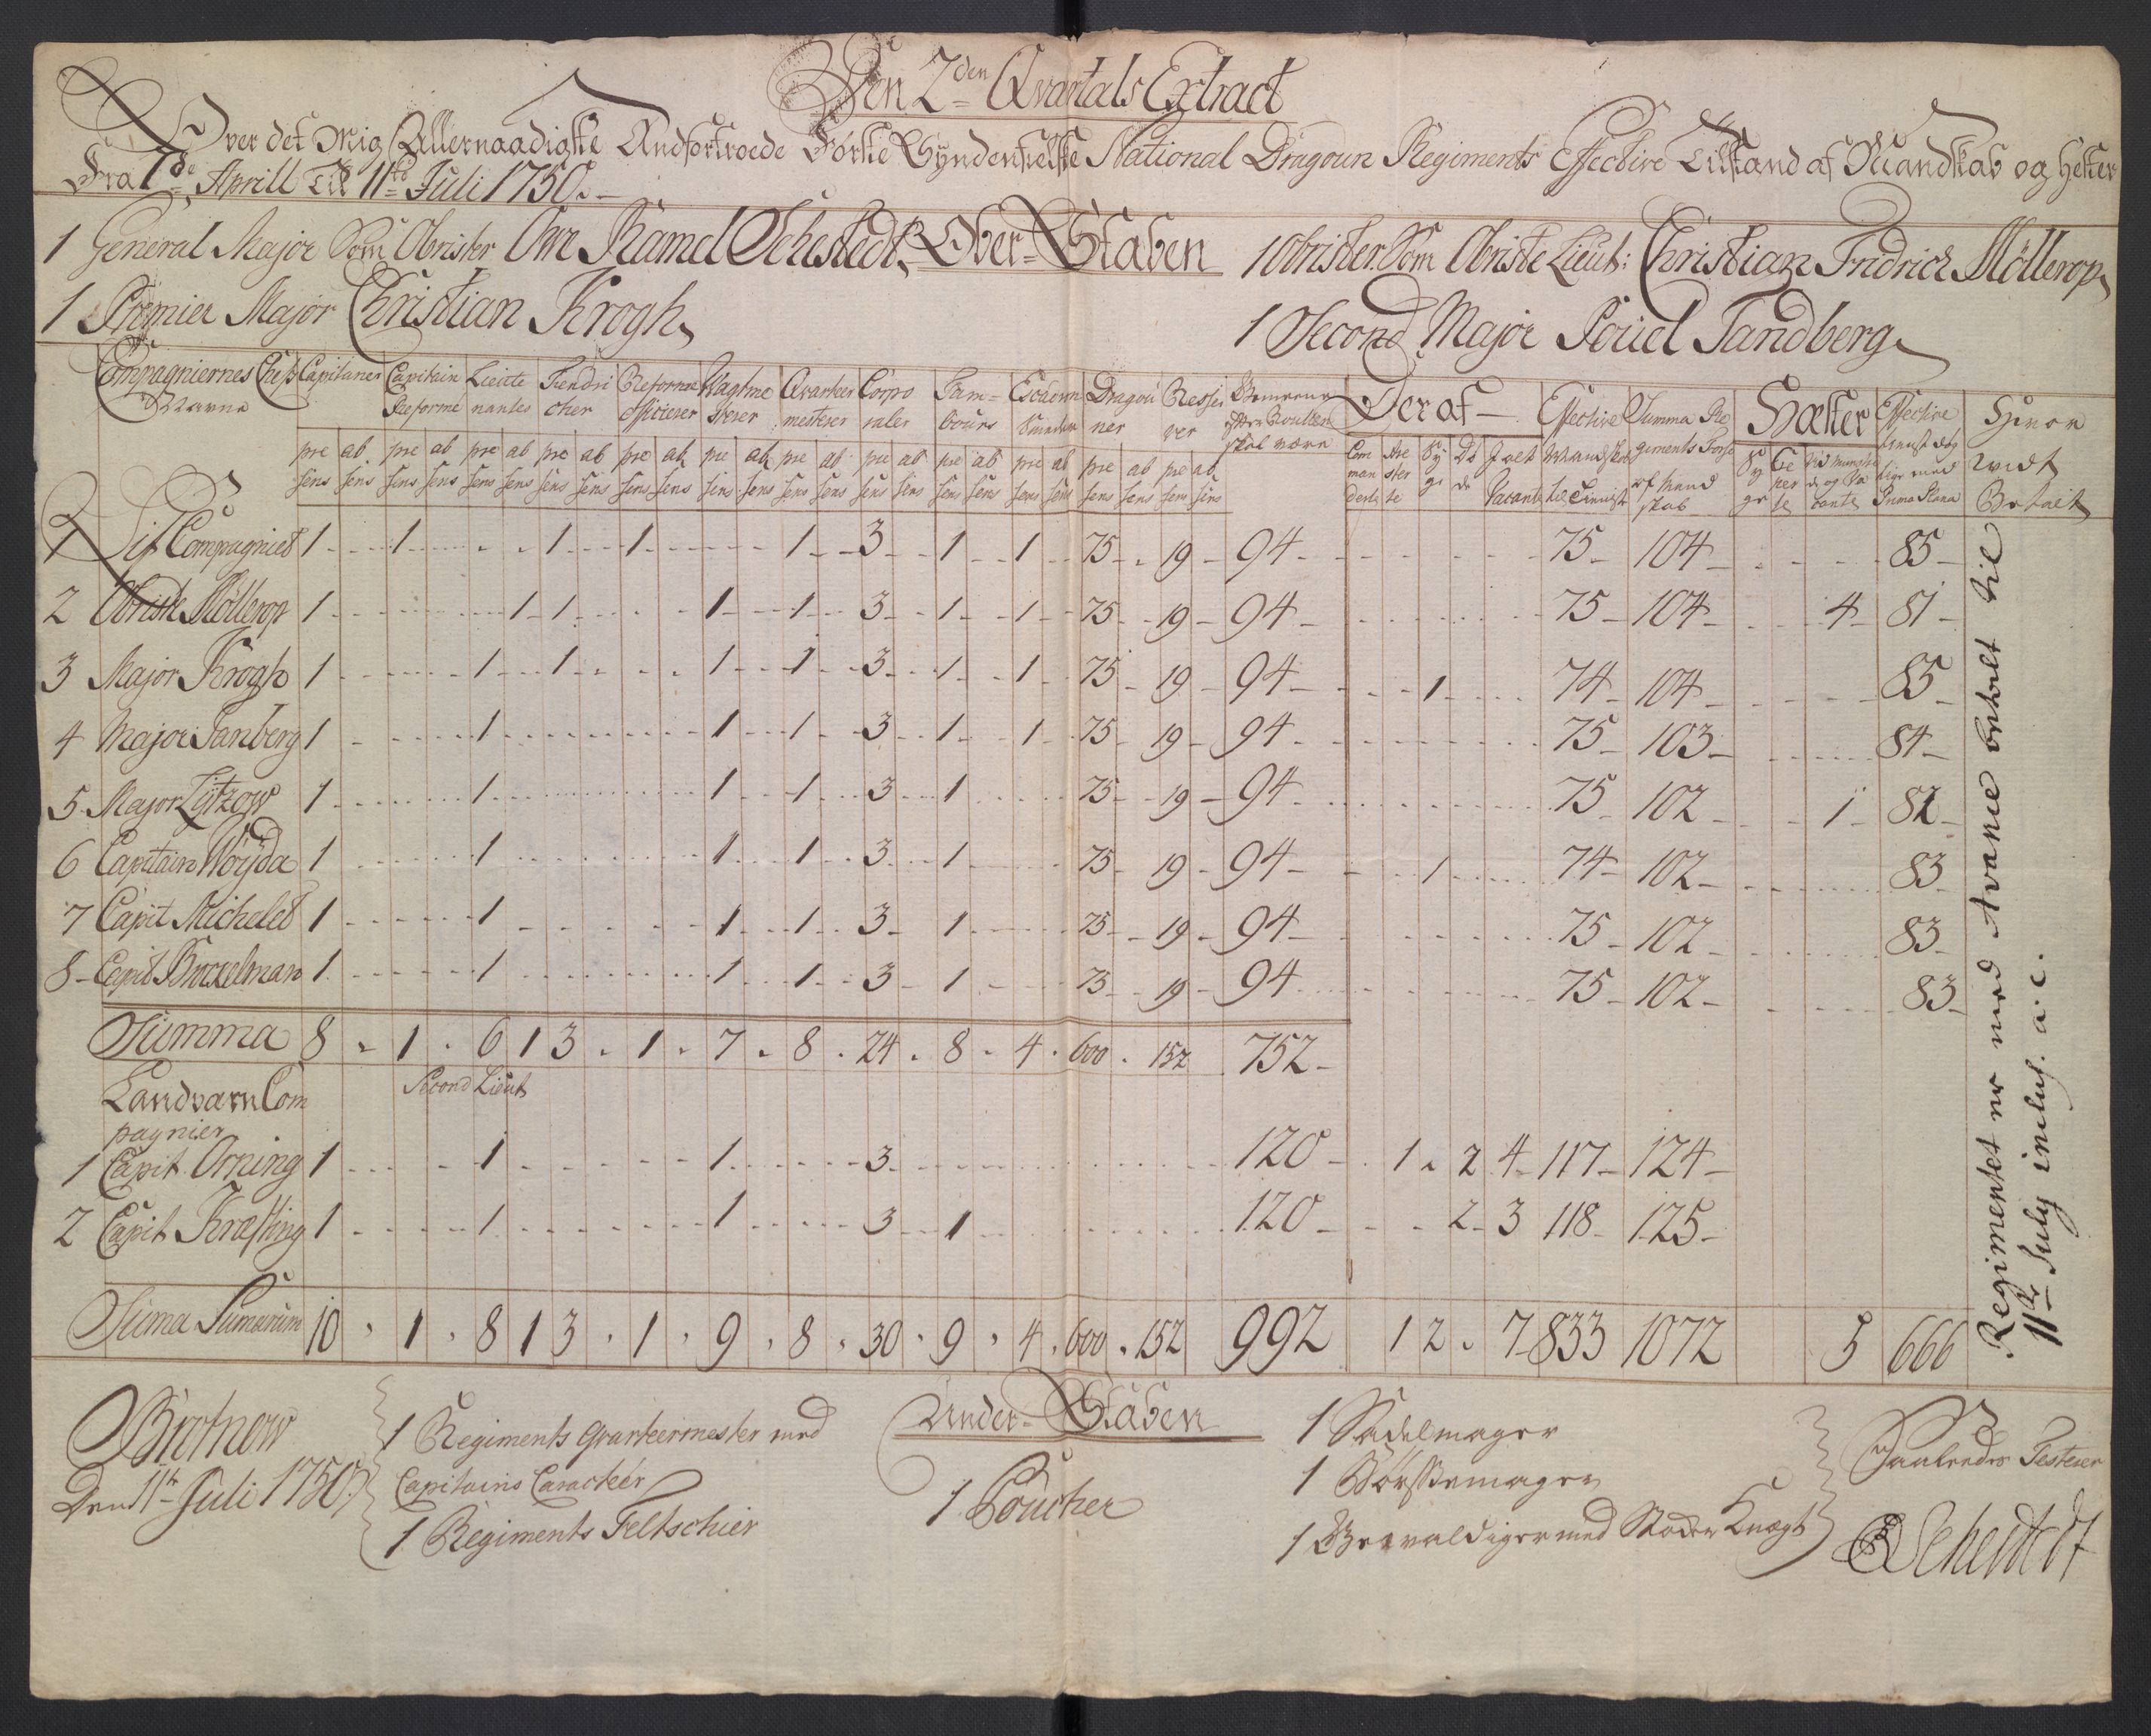 Den 2den Qvartals Extract
Over det Mig Allernaadigste Andfortroede Første Syndenfielske National Dragoun Regiments Effective Tilstand af Mandskab og Hester
Fra 1de Aprill Til 11te Juli 1750.
1 General Major Som Obrister Ove Ramel Sehestedt, Over-Staben 1 Obrister Som Obriste Lieut: Christian Fridrich Möllerop
1 Premier Major Christian Krogh, 1 Second Major Pouel Tandberg
Compagniernes Chefs Navne Capitainer Capitain Reforme Lieute nantes Fendri cher Reforme Officierer Vagtme sterer Qvarteer mestere Corpo raler Tam= bours Escadron Dragou ner Resser ver Deraf Effective Mandskab til Tienniste Summa Re giments Forse af Mand skab Hæster Effective Prima Plana Hvor Vidt Betalt
pre sens ab sens pre sens ab sens pre sens ab sens pre sens ab sens pre sens ab sens pre sens ab sens pre sens ab sens pre sens ab sens pre sens ab sens pre sens ab sens pre sens ab sens pre sens ab sens Com man derte Are ster te Sy ge Dø de Vacante Sy ge
1 Lif Compagniet 1 1 1 1 1 3 1 1 75 19 94 75 104 85
2 Obriste Möllerop 1 1 1 1 1 3 1 1 75 19 94 75 104 4 81
3 Major Krogh 1 1 1 1 1 3 1 1 75 19 94 1 74 104 85
4 Major Tanberg 1 1 1 1 3 1 1 75 19 94 75 103 84
5 Major Lÿtzow 1 1 1 1 3 1 75 19 94 75 102 1 82
6 Capitain Wöyda 1 1 1 1 3 1 75 19 94 1 74 102 83
7 Capit Michelet 1 1 1 1 3 1 75 19 94 75 102 83
8 Capit 1 1 1 1 3 1 75 19 94 75 102 83
Summa 8 1 6 1 3 1 7 8 24 8 4 600 152 752
Landværn Com
pagnier
Second Lieut
1 Capit Orning 1 1 1 3 120 1 2 4 117 124
2 Capit Kræfting 1 1 1 3 1 120 2 3 118 125
Suma Sumarum 10 1 8 1 3 1 9 8 30 9 4 600 152 992 1 2 7 833 1072 5 666
Regimentet er med Avance betalt til
11te July inclus. a. c.
Brotnow
Den 11te Juli 1750
1 Regiments Qvarteermester med
Capitains Caracteer
1 Regiments Feltschier
Under-Staben
1 Poucher
1 Sadelmager
1 Børssemager
1 Gevaldiger med Stoder Knegt
Saaledes Testerer
Sehestedt